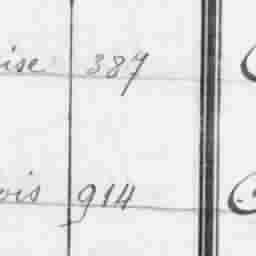 ise 387
ois 914